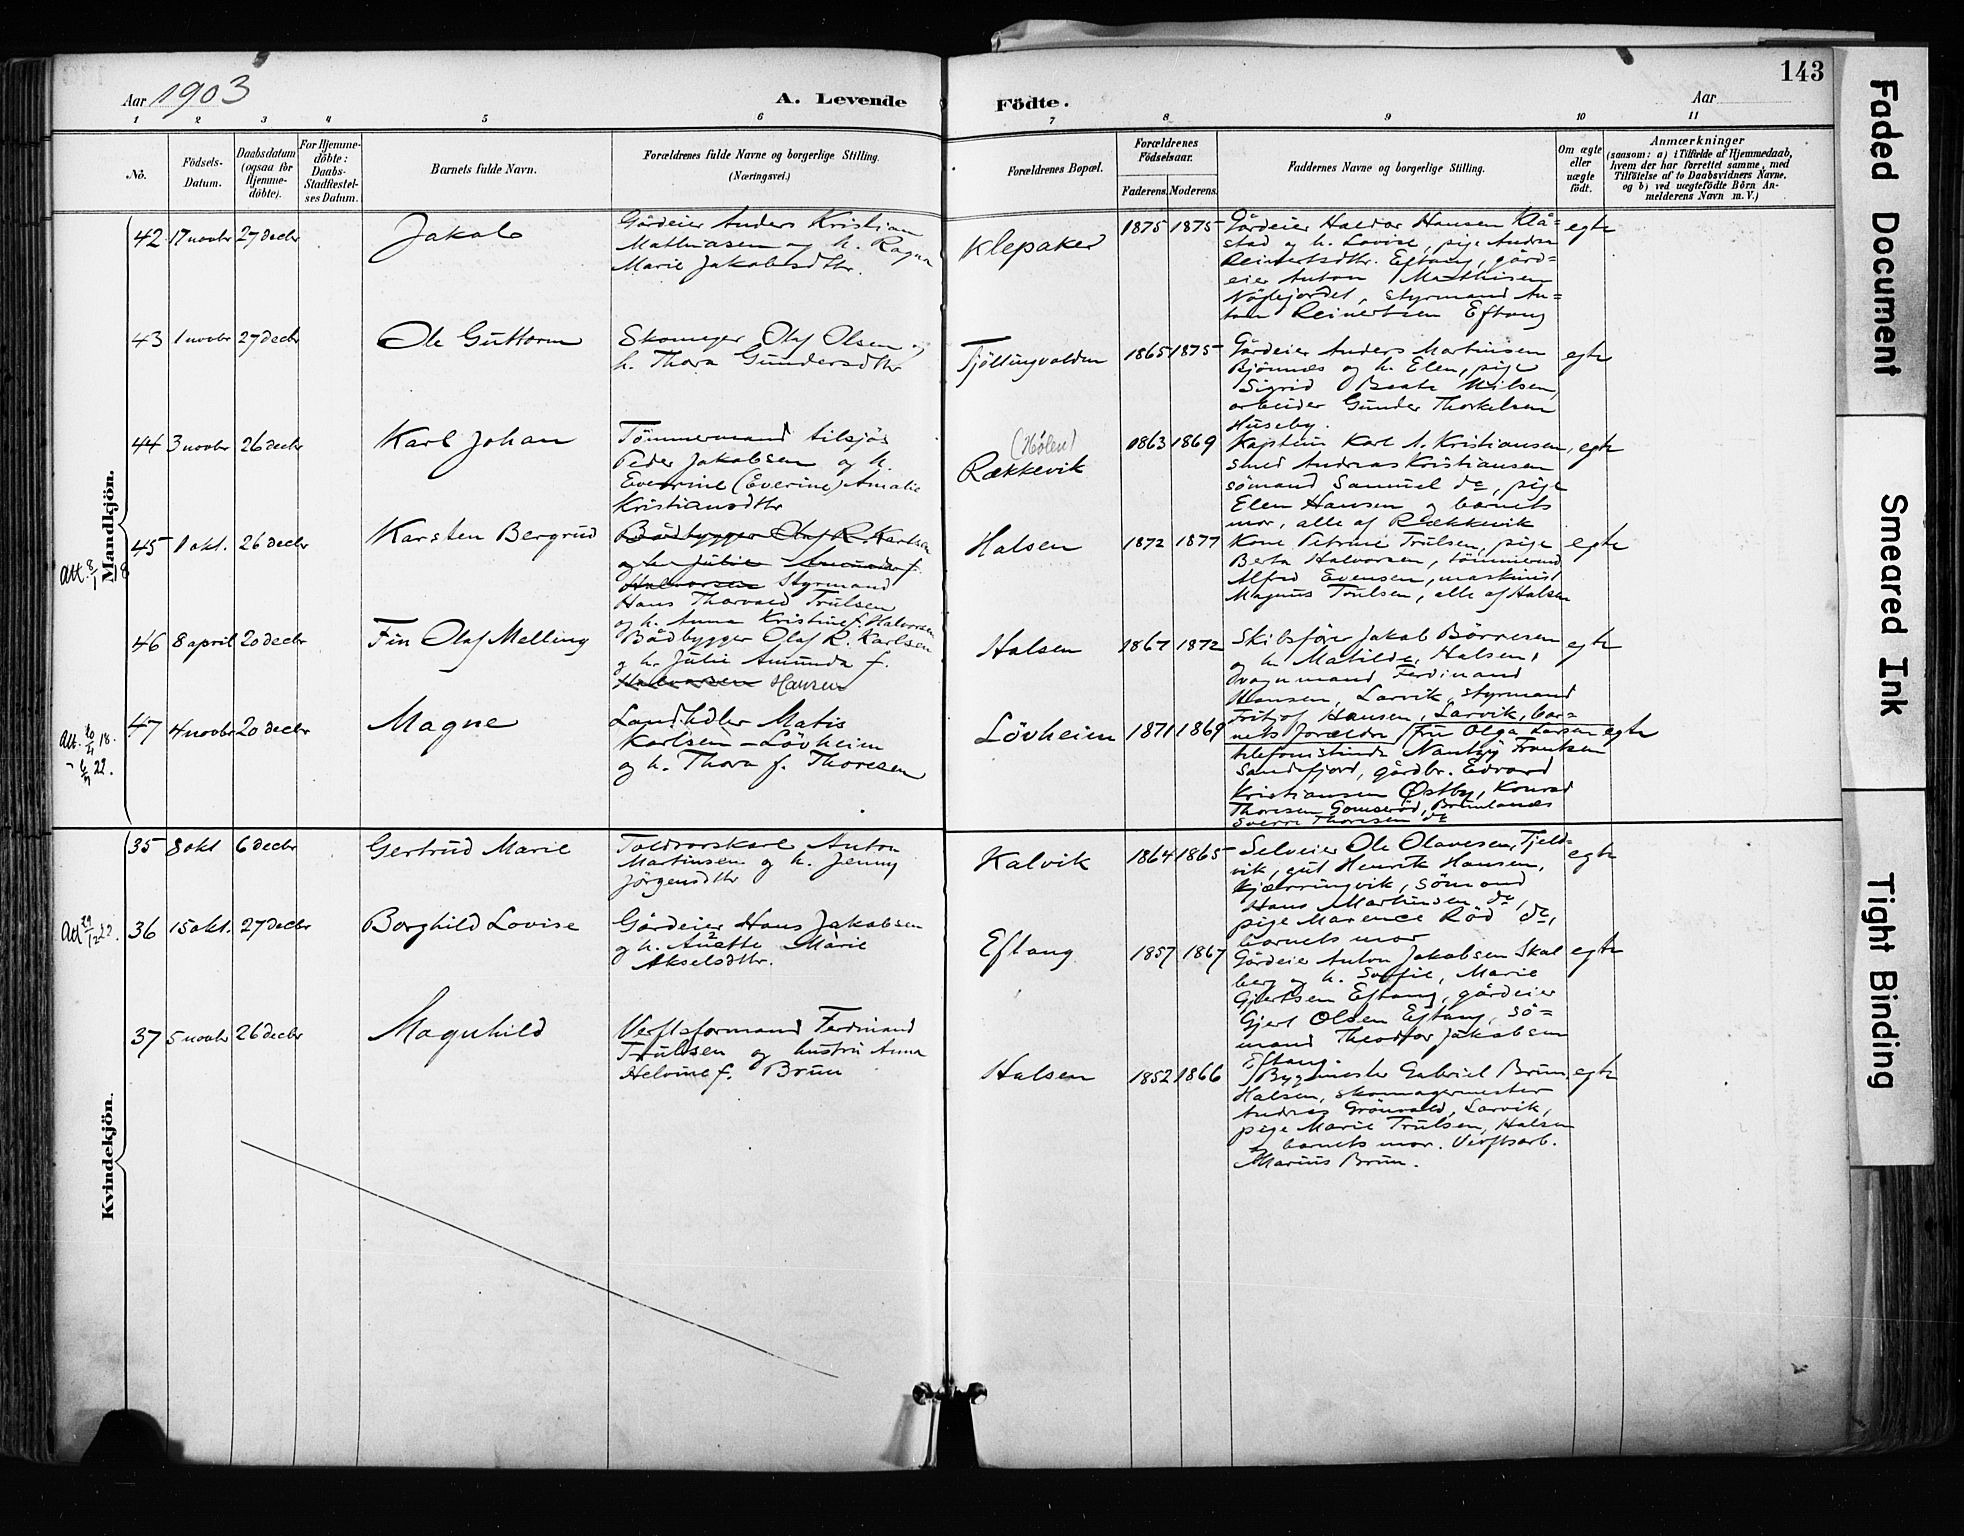 Aar 1903
A. Levende Födte.
Aar
143
1 2 3 4 5 6 7 8 9 10 11
No.
Födsels-Datum.
Daabsdatum (ogsaa for Hjemme-döbte).
For Hjemme-döbte: Daabs-Stadfæstel-ses Datum.
Barnets fulde Navn.
Forældrenes fulde Navne og borgerlige Stilling. (Næringsvei.)
Forældrenes Bopæl.
Forældrenes Födselsaar.
Faderens. Moderens.
Faddernes Navne og borgerlige Stilling.
Om ægte eller uægte födt.
Anmærkninger
(saasom: a) i Tilfælde af Hjemmedaab,
hvem der har forrettet samme, med
Tilföielse af to Daabsvidners Navne,
og b) ved uægtefödte Börn An-
melderens Navn m. V.)
Mandkjön.
42 17 novbr 27 decbr
Jakob
Gårdeier Anders Kristian
Mathiasen og h. Ragna
Marie Jakobsdtr.
Klepaker
1875 1875
Gårdeier Haldor Hansen Klå=
stad og h. Lovise, pige Andrea
Reinertsdtr. Eftang, gård=
eier Anton Mathisen
Nöglejordet, styrmand An=
ton Reinertsen Eftang
egte
43 1 novbr 27 decbr
Ole Guttorm
Skomager Olaf Olsen og
h. Thora Gundersdtr
Tjöllingvolden
1865 1875
Gårdeier Anders Martinsen
Bjönnes og h. Elen, pige
Sigrid Beate Nilsen,
arbeider Gunder Thorkelsen
Huseby.
egte
44 3 novbr 26 decbr
Karl Johan
Tömmermand tilsjös
Peder Jakobsen og h.
Everine (Everine) Amalie
Kristiansdtr
(Hölen)
Rækkevik
1863 1869
Kaptein Karl A. Kristiansen,
smed Andreas Kristiansen
sömand Samuel do, pige
Elen Hansen og barnets
mor, alle af Rækkevik
egte
Att. 8/1 18
45 1 okt. 26 decbr
Karsten Bergrud
Bådbygger Olaf R. Karlsen
og h. Julie Amunda f.
Halvorsen Styrmand
Hans Thorvald Trulsen
og h. Anna Kristine f. Halvorsen
Halsen
1872 1877
Kone Petrine Trulsen, pige
Berta Halvorsen, tömmermd
Alfred Evensen, maskinist
Magnus Trulsen, alle af Halsen
egte
46 8 april 20 decbr
Fin Olaf Melling
Bådbygger Olaf R. Karlsen
og h. Julie Amunda f.
Halvorsen Hansen
Halsen
1867 1872
Skibsförer Jakob Börresen
og h. Matilde, Halsen,
vognmand Ferdinand
Hansen, Larvik, styrmand
Fritjof Hansen, Larvik, bar=
nets forældre
egte
Att. 20/4 18.
47 4 novbr 20 decbr
Magne
Landhdler Matis
Karlsen - Lövheim
og h. Thora f. Thoresen
Lövheim
1871 1869
Fru Olga Larsen
telefonistinde Frantzen
Sandefjord, gårdbr. Edvard
Kristiansen Østby, Konrad
Thoresen Gomseröd, Brunlanes
Sverre Thoresen do
egte
Kvindekjön.
35 8 okt 6 decbr
Gertrud Marie
Toldvorskarl Anton
Martinsen og h. Jenny
Jörgensdtr
Kalvik
1864 1865
Selveier Ole Olavesen, Tjeld=
vik, gut Henrik Hansen,
Kjærringvik, sömand
Hans Martinsen do,
pige Marence Röd do,
barnets mor
egte
36 15 okt. 27 decbr
Borghild Lovise
Gårdeier Hans Jakobsen
og h. Anette Marie
Akselsdtr.
Eftang
1857 1867
Gårdeier Anton Jakobsen Skal
berg og h. Soffie, Marie
Gjertsen Eftang, gårdeier
Gjert Olsen Eftang, sö=
mand Theodor Jakobsen
Eftang.
egte
37 5 novbr 26 decbr
Magnhild
Verftsformand Ferdinand
Trulsen og hustru Anna
Helvine f. Brun
Halsen
1852 1866
Bygmester Gabriel Brun,
Halsen, skomagermester
Andreas Grönvold, Larvik,
pige Marie Trulsen, Halsen
og barnets mor. Verftsarb.
Marius Brun.
egte
Faded Document
Smeared Ink
Tight Binding